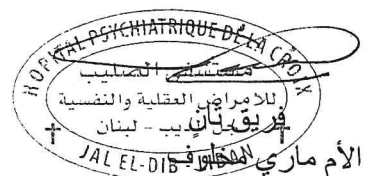 HOPITAL PSYCHIATRIQUE DE LA CROIX
مستشفى الصليب
للامراض العقلية والنفسية
جل الديب - لبنان
JAL EL-DIB - LIBAN
فريق ثان
الأم ماري مخلوف